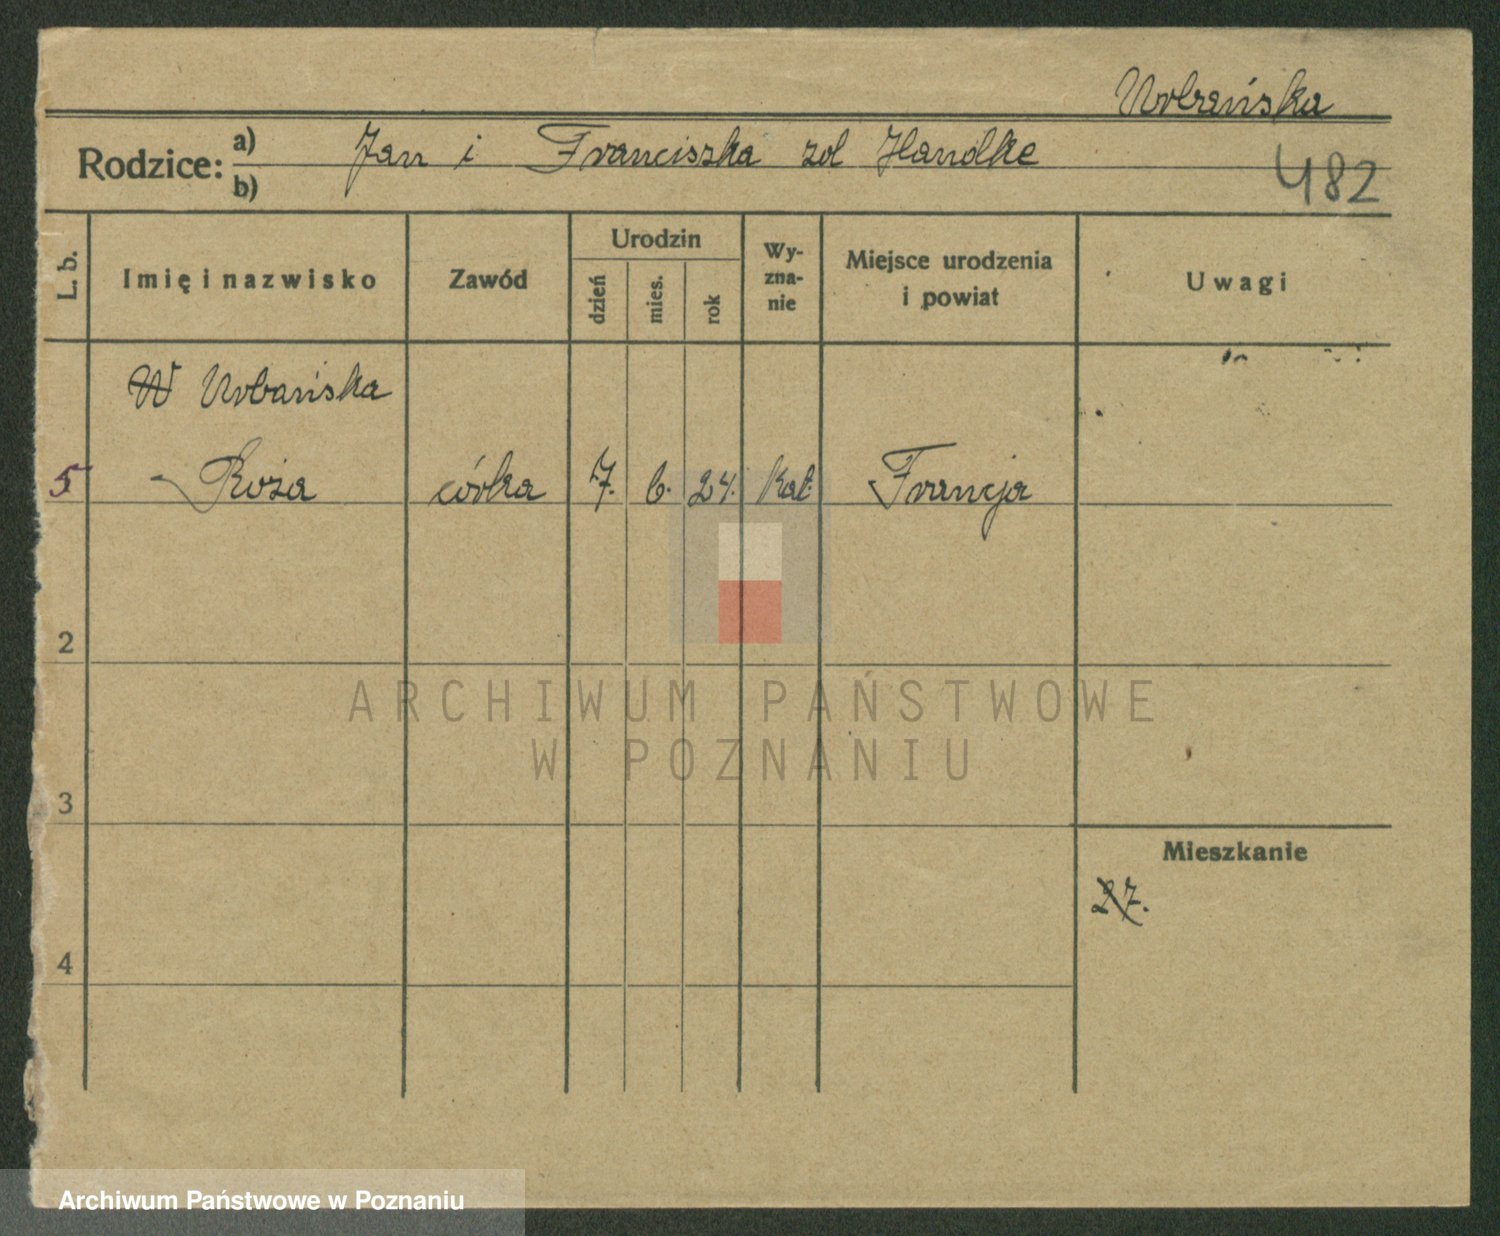 Urbańska
Rodzice: a) Jan i Franciszka zd Handke
b)
482
L. b.
Imię i nazwisko
Zawód
Urodzin
dzień
mies.
rok
Wy-
zna-
nie
Miejsce urodzenia
i powiat
Uwagi
Urbańska
5 Roża córka 7. 6. 24. kat. Francja
2
3
4
Mieszkanie
ARCHIWUM PAŃSTWOWE
W POZNANIU
Archiwum Państwowe w Poznaniu